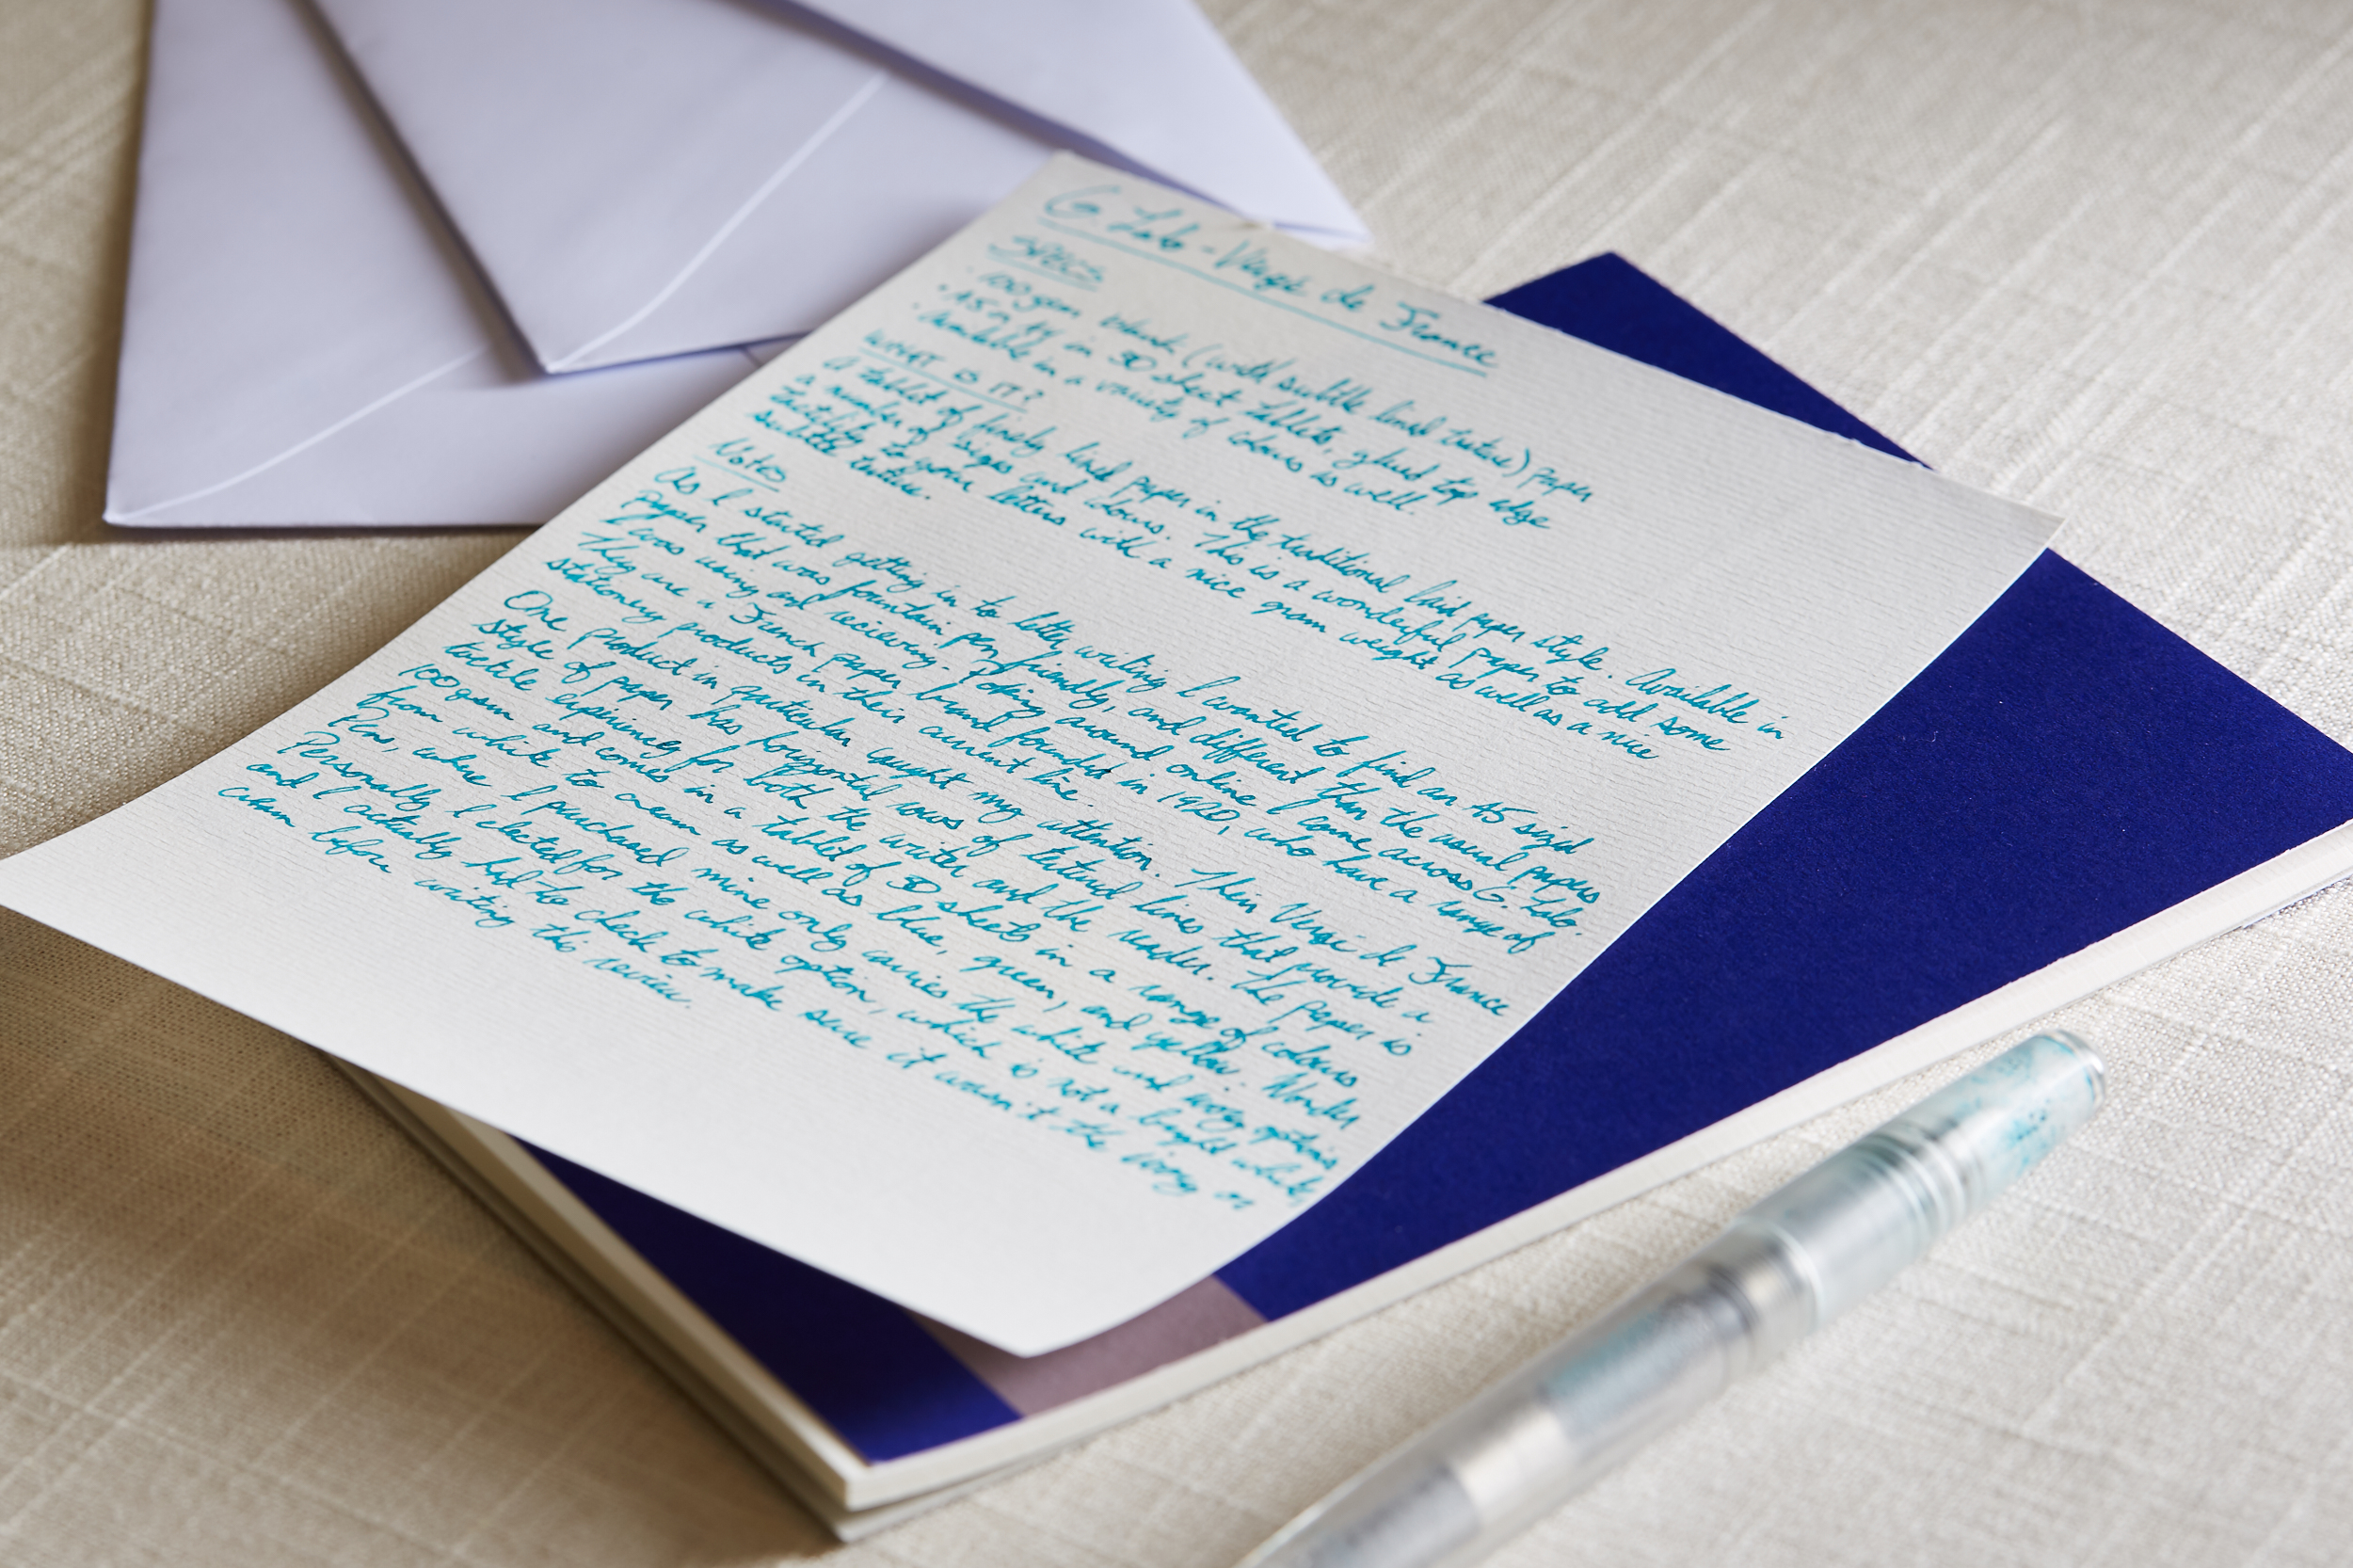 G. Lalo - Vergé de France
SPECS
· 100gsm blank (with subtle lined texture) paper
· A5 in 50 sheet tablets, glued top edge
· Available in a variety of colours as well
WHAT IS IT?
A tablet of finely lined paper in the traditional laid paper style. Available in
a number of sizes and colours. This is a wonderful paper to add some
texture to your letters with a nice gram weight as well as a nice
subtle texture.
Notes
As I started getting in to letter writing I wanted to find an A5 sized
paper that was fountain pen friendly, and different than the usual papers
I was using and reviewing. Poking around online I came across G. Lalo.
They are a French paper brand founded in 1920, who have a range of
stationery products in their current line.
One product in particular caught my attention. Their Vergé de France
style of paper has horizontal rows of textured lines that provide a
tactile experience for both the writer and the reader. The paper is
100gsm and comes in a tablet of 50 sheets in a range of colours
from white to cream as well as blue, green, and yellow. Wonder
Pens, where I purchased mine only carries the white and ivory options.
Personally I elected for the white option, which is not a bright white,
and I actually had to check to make sure it wasn't the ivory or
cream before writing this review.